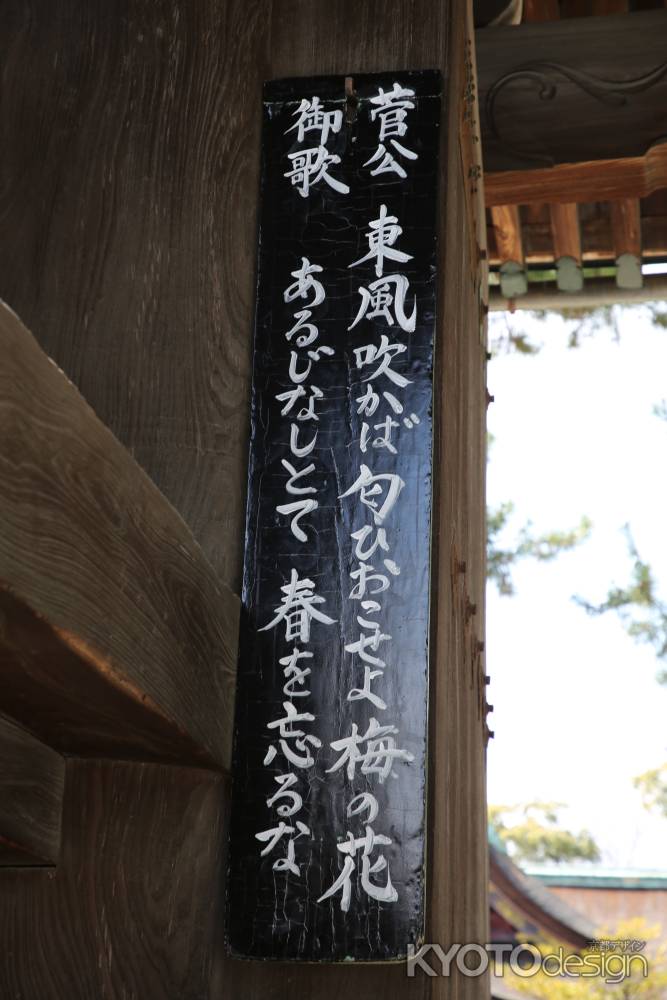 菅公
御歌
東風吹かば匂ひおこせよ梅の花
あるじなしとて 春を忘るな
KYOTOdesign
京都デザイン